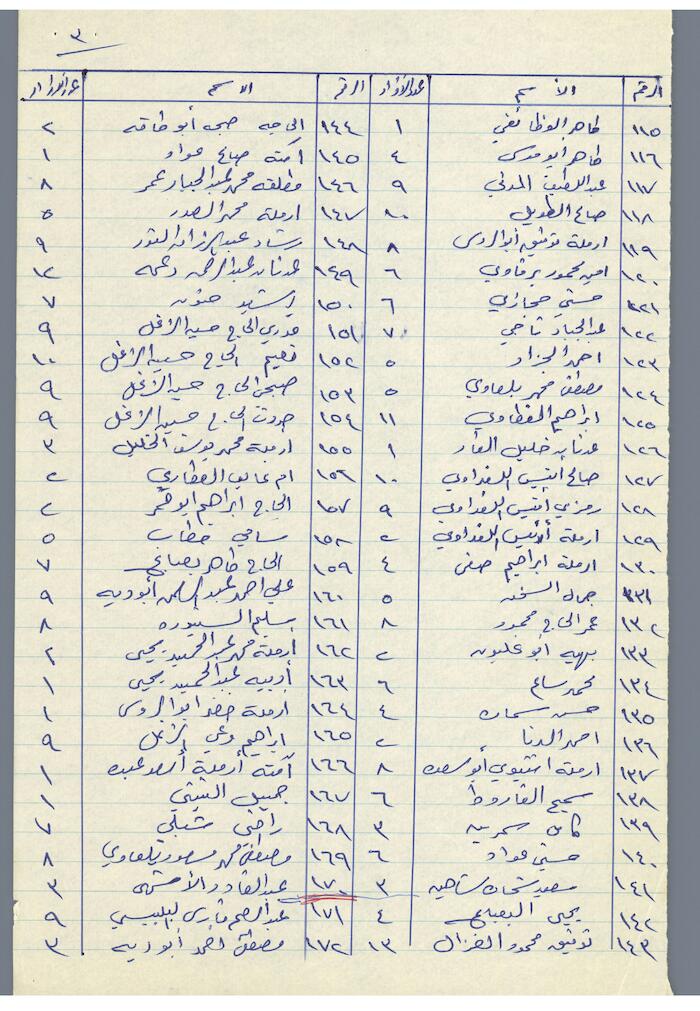 ٣
الرقم الأسم عدد الأفراد الرقم الاسم عدد الأفراد
١١٥ طاهر الوظائفي ١ ١٤٤ الوجيه صبحي أبو طاقه ٢
١١٦ طاهر ابو موسى ٤ ١٤٥ آمنة صالح عواد ١
١١٧ عبد اللطيف المدني ٩ ١٤٦ مطلقه محمد عبد الجبار عمر ٨
١١٨ صالح الطويل ١٠ ١٤٧ ارملة محمد الصدر ٥
١١٩ ارملة توفيق أبو الروس ٨ ١٤٨ رشاد عبد الرزاق النتور ٩
١٢٠ امين محمود برقاوي ٦ ١٤٩ عدنان عبد الرحمن دعمه ١٢
١٢١ حسني حجازي ٦ ١٥٠ رشيد حنون ٧
١٢٢ عبد الجبار تاجي ٧ ١٥١ فوزي الحاج حسين الزغل ٩
١٢٣ احمد الجزار ٥ ١٥٢ نعيم الحاج حسين الزغل ١٠
١٢٤ مصطفى محمد بلعاوي ٥ ١٥٣ صبحي الحاج حسين الزغل ٩
١٢٥ ابراهيم القطاوي ١١ ١٥٤ جودت الحاج حسين الزغل ٩
١٢٦ عدنان خليل الفار ١ ١٥٥ ارملة محمد يوسف الخليل ٣
١٢٧ صالح أنيس البغداوي ١٠ ١٥٦ ام غالب القطاري ٢
١٢٨ رمزي أنيس البغداوي ٩ ١٥٧ الحاج ابراهيم ابو قمر ٢
١٢٩ ارملة أنيس البغداوي ٢ ١٥٨ سامي خطاب ٥
١٣٠ ارملة ابراهيم صفي ٤ ١٥٩ الحاج طاهر بصباغ ٧
١٣١ جمال السخن ٥ ١٦٠ علي احمد عبد الرحمن أبو ديه ٩
١٣٢ عمر الحاج محمود ٨ ١٦١ سليم السنيوره ٨
١٣٣ بهيه أبو غليون ٢ ١٦٢ ارملة محمد عبد الحميد يحيى ٢
١٣٤ محمد سالم ٦ ١٦٣ أديبه عبد الحميد يحيى ١
١٣٥ حسن سمان ٤ ١٦٤ ارملة خضر ابو الروس ١
١٣٦ احمد الدنا ٢ ١٦٥ ابراهيم وهبي الزغل ٩
١٣٧ ارملة اشتيوي أبو سعده ٨ ١٦٦ آمنه أرملة أسعد عبده ١
١٣٨ سميح القاروط ٦ ١٦٧ جميل الشيتي ١
١٣٩ كامل سمرين ٣ ١٦٨ راضي شبلي ٧
١٤٠ حسني عواد ٦ ١٦٩ مصطفى محمد مسعود بلعاوي ٨
١٤١ سعيد شحاده شاهين ٣ ١٧٠ عبد القادر الأشهب ٣
١٤٢ يحيى البعباع ٤ ١٧١ عبد الرحيم قارس البلبيسي ٩
١٤٣ توفيق محمود الغزال ١٣ ١٧٢ مصطفى أحمد أبو ديه ٣